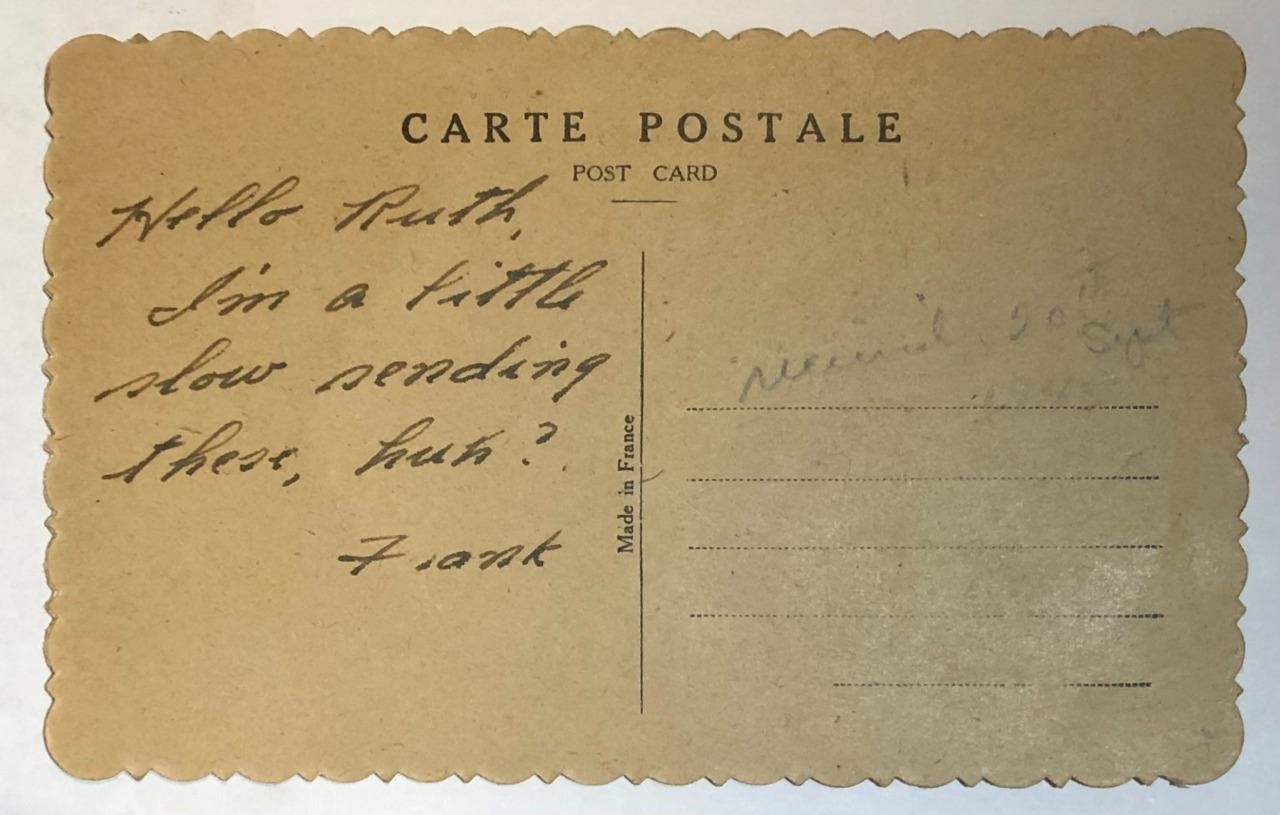 CARTE POSTALE
POST CARD
Hello Ruth,
I'm a little
slow sending
these, huh?
Frank
Made in France
received 20th
Sept
1945